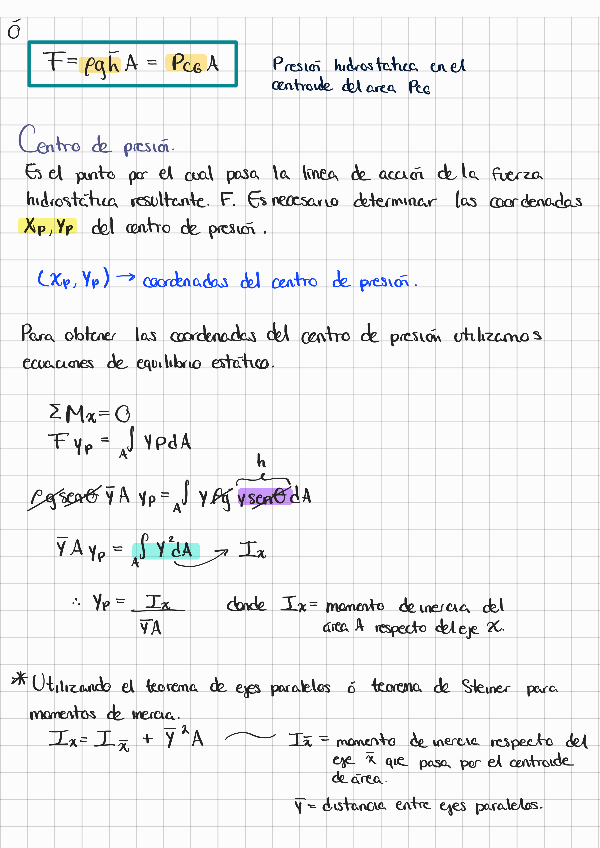 ó
F = ρgh̄ A = P_CG A
Presión hidrostática en el
centroide del area P_CG
Centro de presión.
Es el punto por el cual pasa la línea de acción de la fuerza
hidrostática resultante. F. Es necesario determinar las coordenadas
Xp, Yp del centro de presión.
(Xp, Yp) → coordenadas del centro de presión.
Para obtener las coordenadas del centro de presión utilizamos
ecuaciones de equilibrio estático.
ΣMx = 0
F yp = ∫_A yPdA
h
ρg senθ ȳA yp = ∫_A y ρg y senθ dA
ȳA yp = ∫_A y²dA → Ix
∴ yp = Ix / ȳA donde Ix = momento de inercia del
área A respecto del eje x.
* Utilizando el teorema de ejes paralelos ó teorema de Steiner para
momentos de inercia.
Ix = I_x̄ + ȳ²A I_x̄ = momento de inercia respecto del
eje x̄ que pasa por el centroide
de área.
ȳ = distancia entre ejes paralelos.